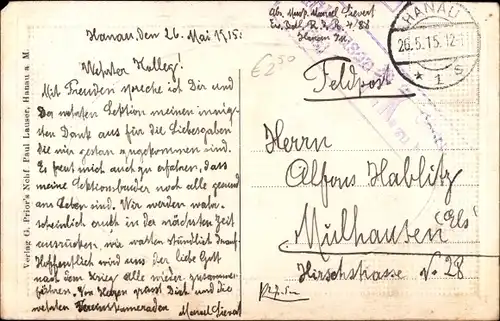 Hanau, den 26. Mai 1915.
Wehrter Kolleg!
Mit Freuden spreche ich Dir und
Der wehrten Sektion meinen innig-
sten Dank aus für die Liebesgaben
die mir gestern zugekommen sind.
Es freut mich auch zu erfahren, dass
meine Sektionsbruder noch alle gesund
am Leben sind. Wir werden wahr-
scheinlich auch in der nächsten Zeit
ausrücken, wir warten stündlich drauf.
Hoffentlich wird uns der liebe Gott
nach dem Krieg alle wieder zusammen-
führen. Von Herzen grüsst Dich und die
wehrten Vereinskameraden
Marcel Sievert
Verlag G. Prior's Nchf. Paul Lauser, Hanau a. M.
€2,50
Abs. Musk. Marcel Sievert
Hanau
HANAU
26.5.15. 12-1
* 1 s
Feldpost
Herrn
Alfons Hablitz
Mülhausen (Els)
Hirschstrasse No 28